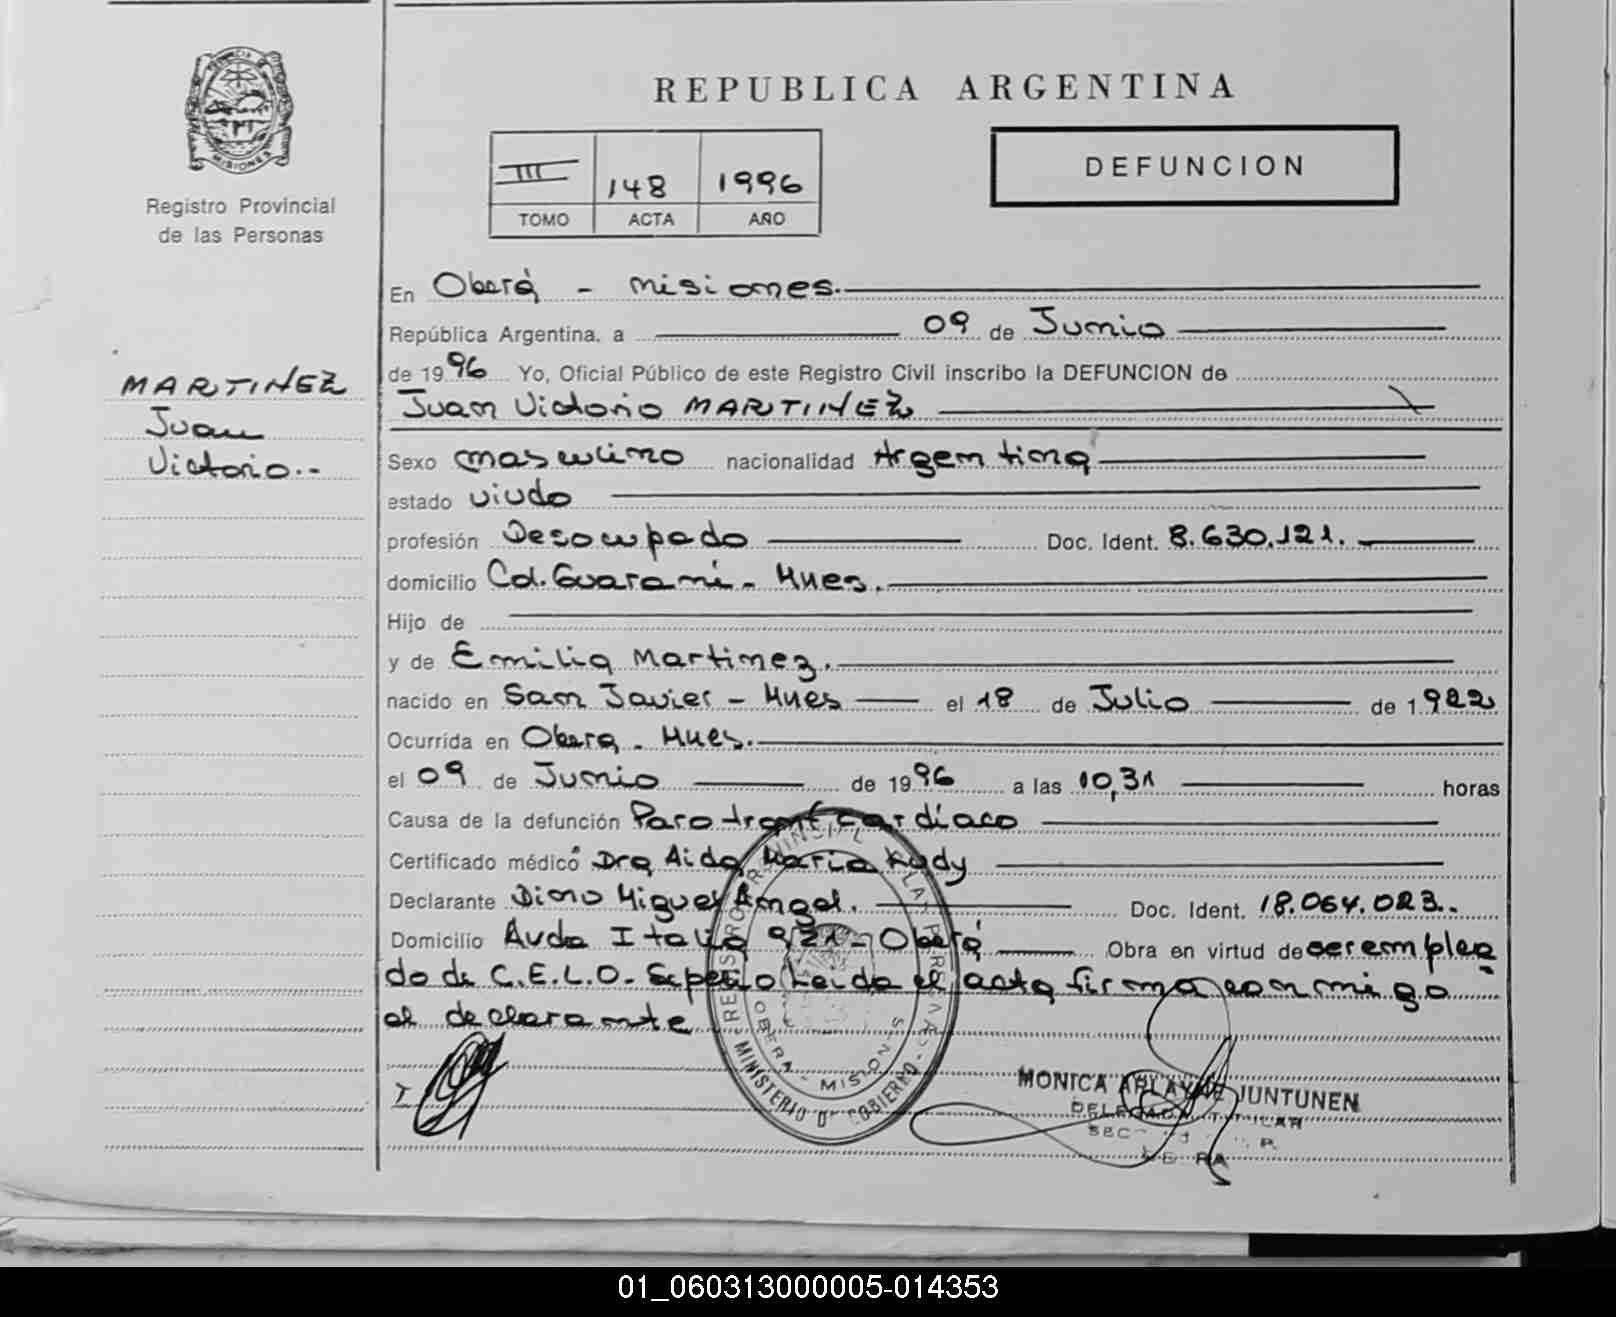 PROVINCIA DE
MISIONES
Registro Provincial
de las Personas
MARTINEZ
Juan
Victorio.-
REPUBLICA ARGENTINA
III 148 1996
TOMO ACTA AÑO
DEFUNCION
En Oberá - misiones.
República Argentina, a 09 de Junio
de 1996 Yo, Oficial Público de este Registro Civil inscribo la DEFUNCION de
Juan Victorio MARTINEZ
Sexo masculino nacionalidad Argentina
estado viudo
profesión Desocupado Doc. Ident. 8.630.121.
domicilio Cd. Guarani - Mnes.
Hijo de
y de Emilia Martinez.
nacido en San Javier - Mnes el 18 de Julio de 1.922
Ocurrida en Obera - Mnes.
el 09 de Junio de 1996 a las 10,31 horas
Causa de la defunción Paro cardíaco
Certificado médico Dra Aida Maria Kudy
Declarante Dino Miguel Angel. Doc. Ident. 18.064.023.-
Domicilio Avda Italia 921 - Oberá Obra en virtud de ser emplea
do de C.E.L.O. Sepelio Leida el acta firma conmigo
el declarante
REGISTRO PROVINCIAL DE LAS PERSONAS
OBERA - MISIONES
MINISTERIO DE GOBIERNO
MONICA JUNTUNEN
DELEGADA TITULAR
01_060313000005-014353